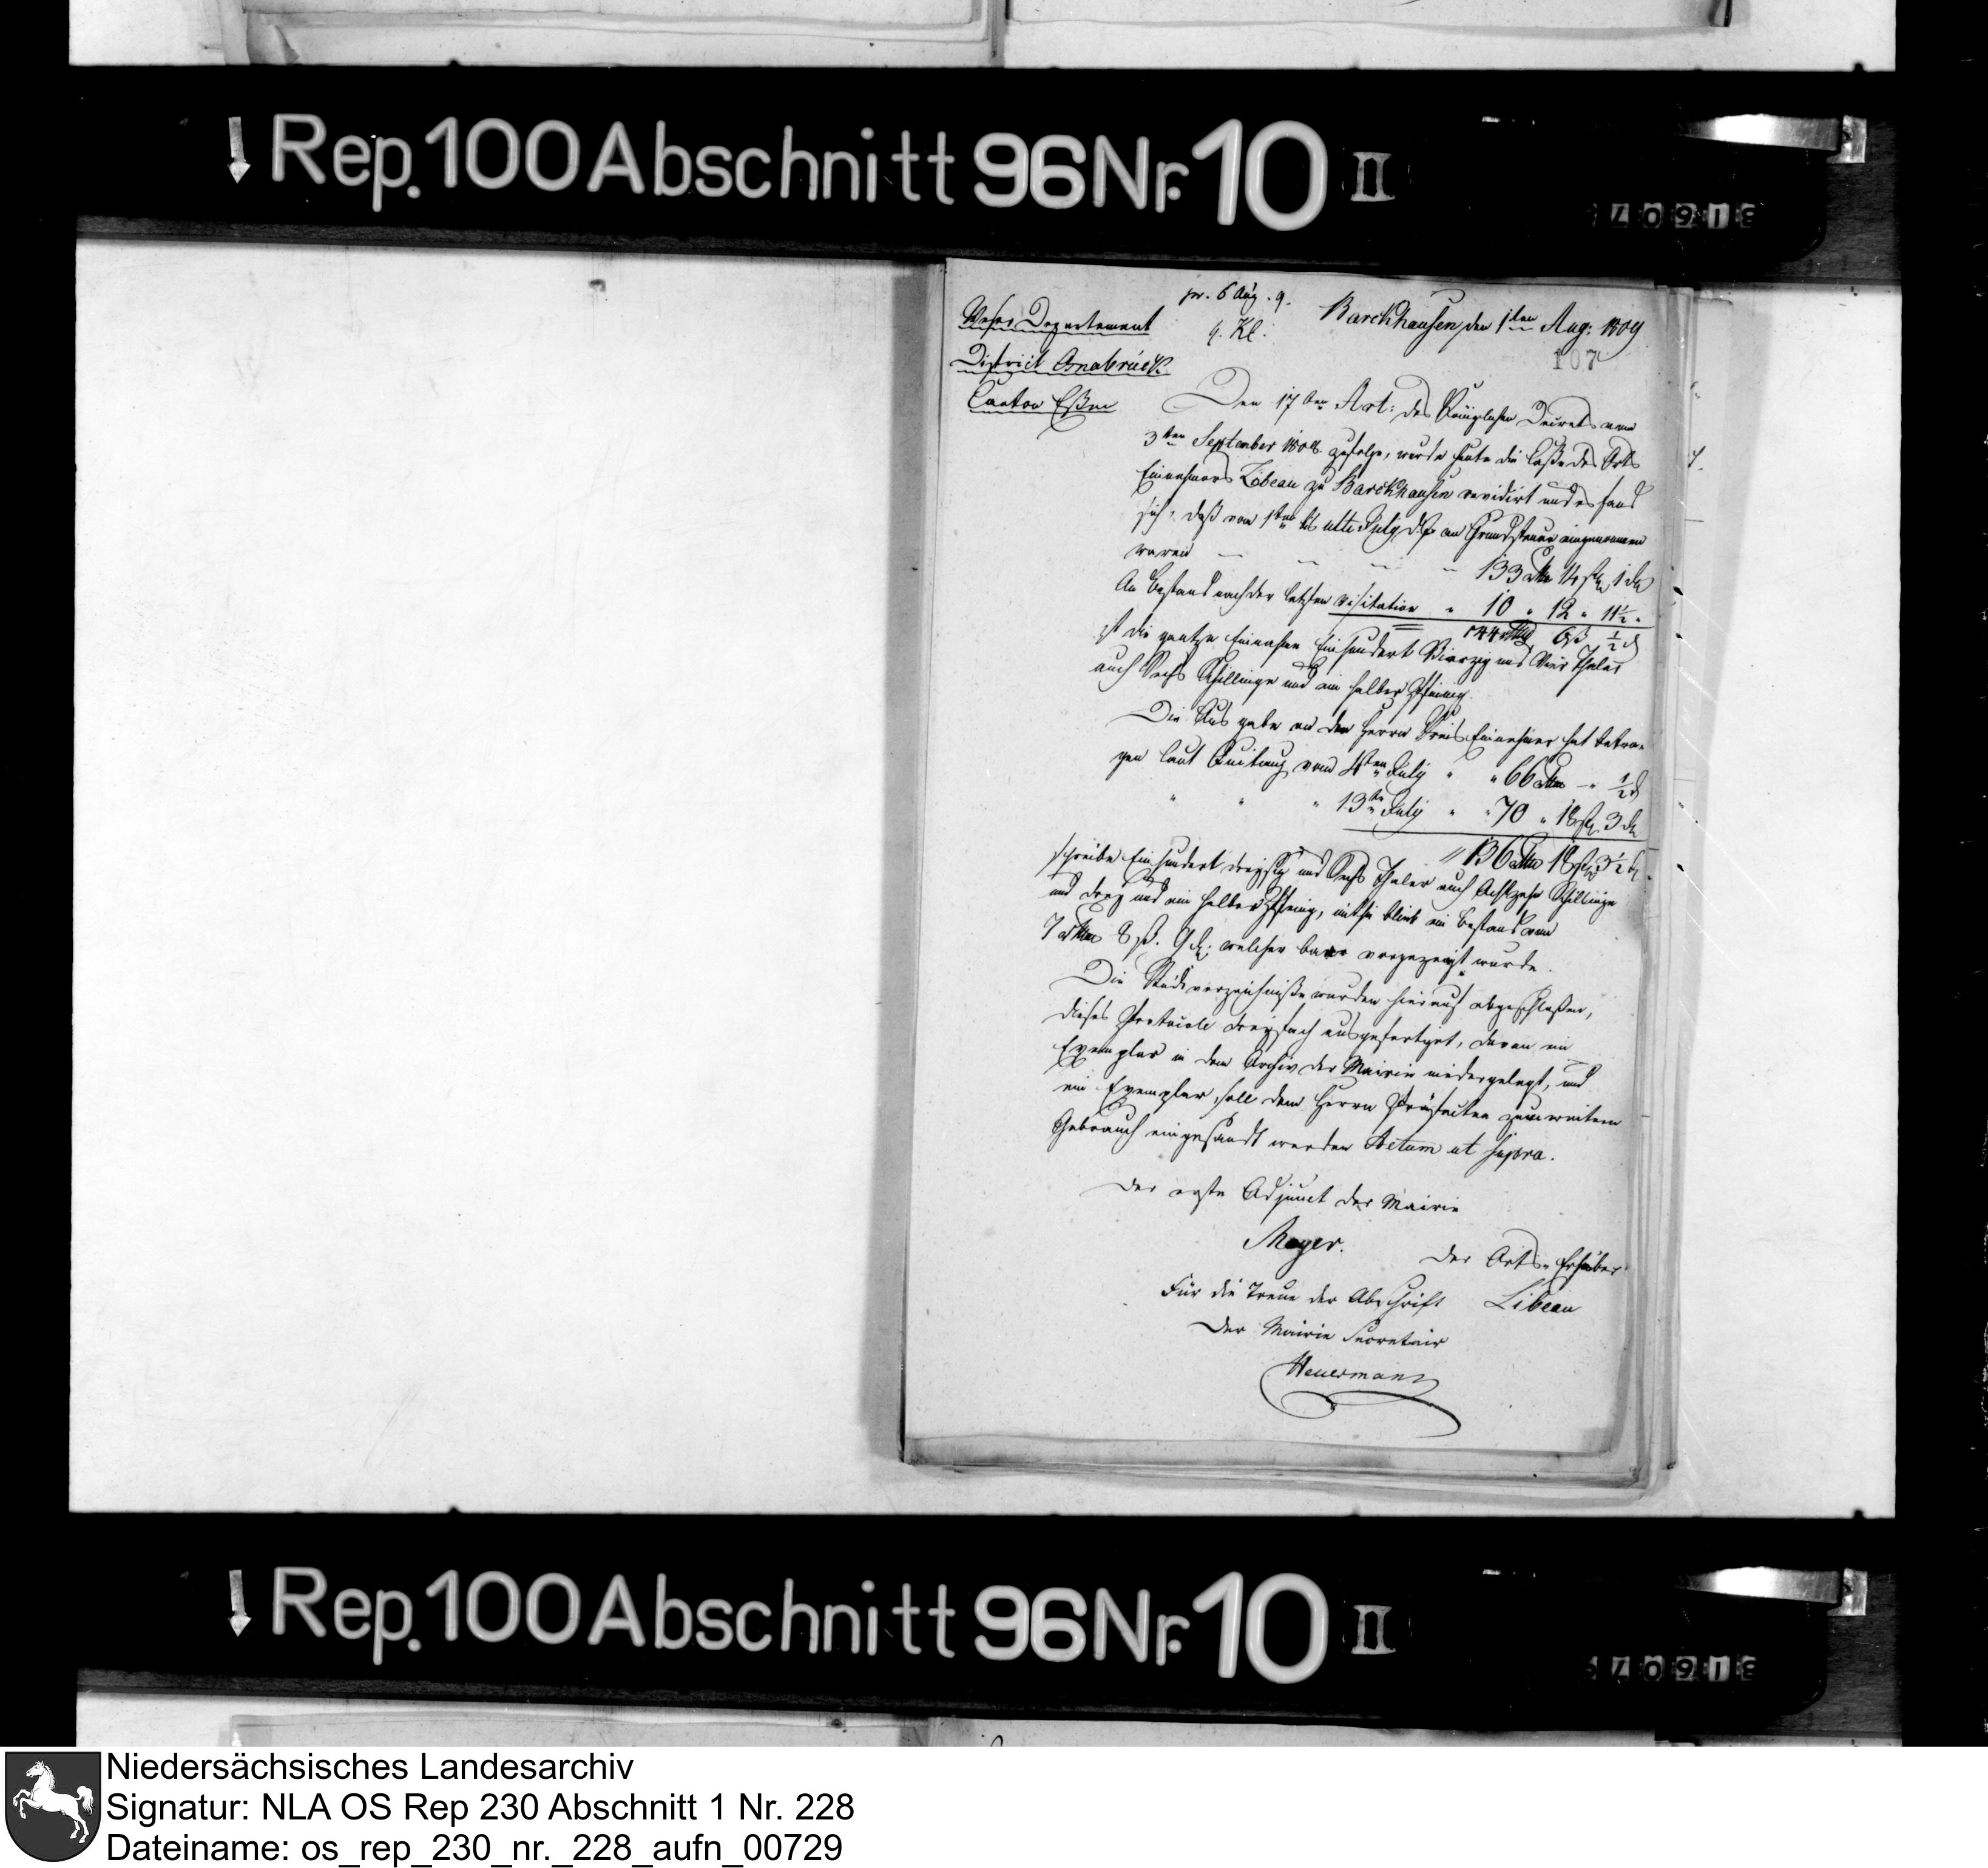 Rep. 100 Abschnitt 96 Nr. 10 II
31607
pr. 6 Aug. 9.
Weser Departement
q. Kl.
Barckhausen den 1ten Aug: 1809
107
District Osnabrück
Canton Eßen
Den 17ten Art: des Königlichen Decrets vom
3ten September 1808. zufolge, wurde heute die Caße des Orts
Einnehmers Libeau zu Barckhausen revidirt und es fand
sich, daß vom 1ten bis ulti July d. J. an Grundsteuer eingenommen
waren 133 Rthlr 14 ßl 1 d
An Bestand nach der letzten Visitation 10 " 12 " 11½ "
144 Rthlr 6 ß ½ d
ist die gantze Einnahme Einhundert Vierzig und Vier Thaler
auch Sechs Schillinge und ein halber Pfening.
Die Ausgabe an den Herrn Kreis Einnehmer hat betra-
gen laut Quitung vom 4ten July " " 66 Rthlr — " ½ d
" " " 13ten July " " 70 " 18 ßl 3 d
" 136 Rthlr 18 ßl 3½ d
schreibe Ein hundert dreyßig und Sechs Thaler auch Achtzehn Schillinge
und drey und ein halber Pfenig, mithin blieb ein Bestand von
7 Rthlr 8 ß. 9 d. welcher baar vorgezeigt wurde.
Die verzeichniße wurden hierauf abgeschloßen,
dieses Protocoll dreyfach ausgefertiget, davon ein
Exemplar in dem Archiv der Mairie niedergelegt, und
ein Exemplar soll dem Herrn Präfecten zum weitern
Gebrauch eingesandt werden Actum ut supra.
Der erste Adjunct der Mairie
Meyer.
Der Orts-Erheber
Für die Treue der Abschrift Libeau
Der Mairie Secretair
Heuermann
Rep. 100 Abschnitt 96 Nr. 10 II
31607
Niedersächsisches Landesarchiv
Signatur: NLA OS Rep 230 Abschnitt 1 Nr. 228
Dateiname: os_rep_230_nr._228_aufn_00729